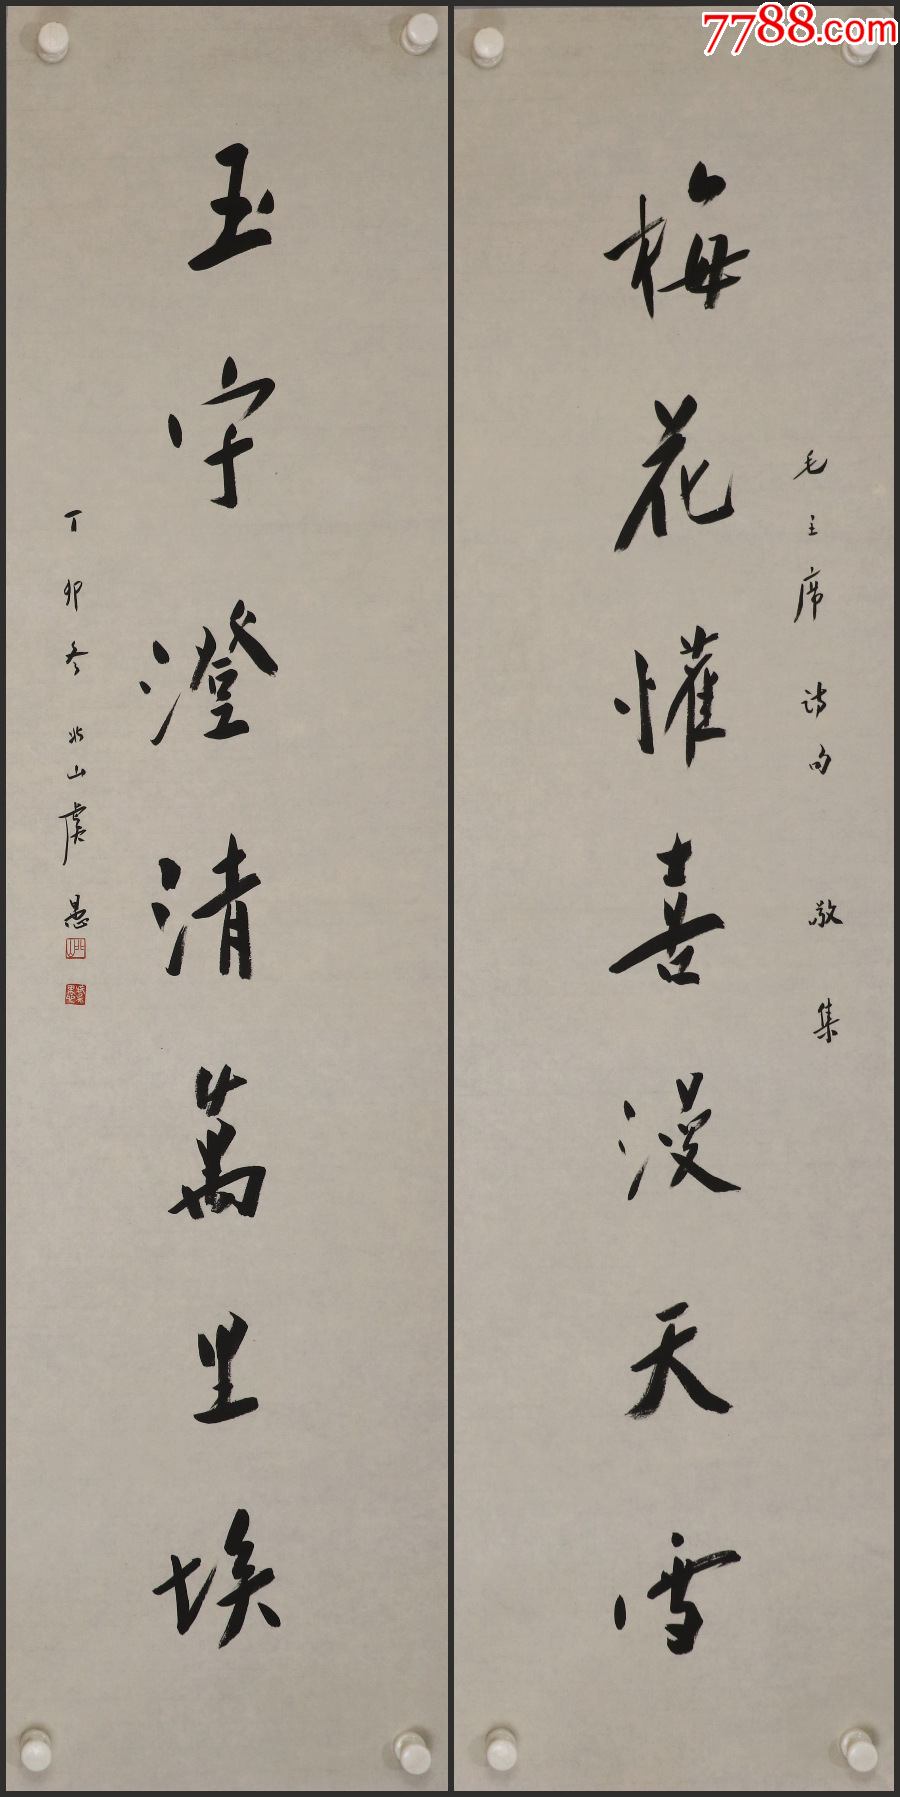 7788.com
梅花懽喜漫天雪
毛主席诗句 敬集
玉宇澄清萬里埃
丁卯冬 北山虞愚